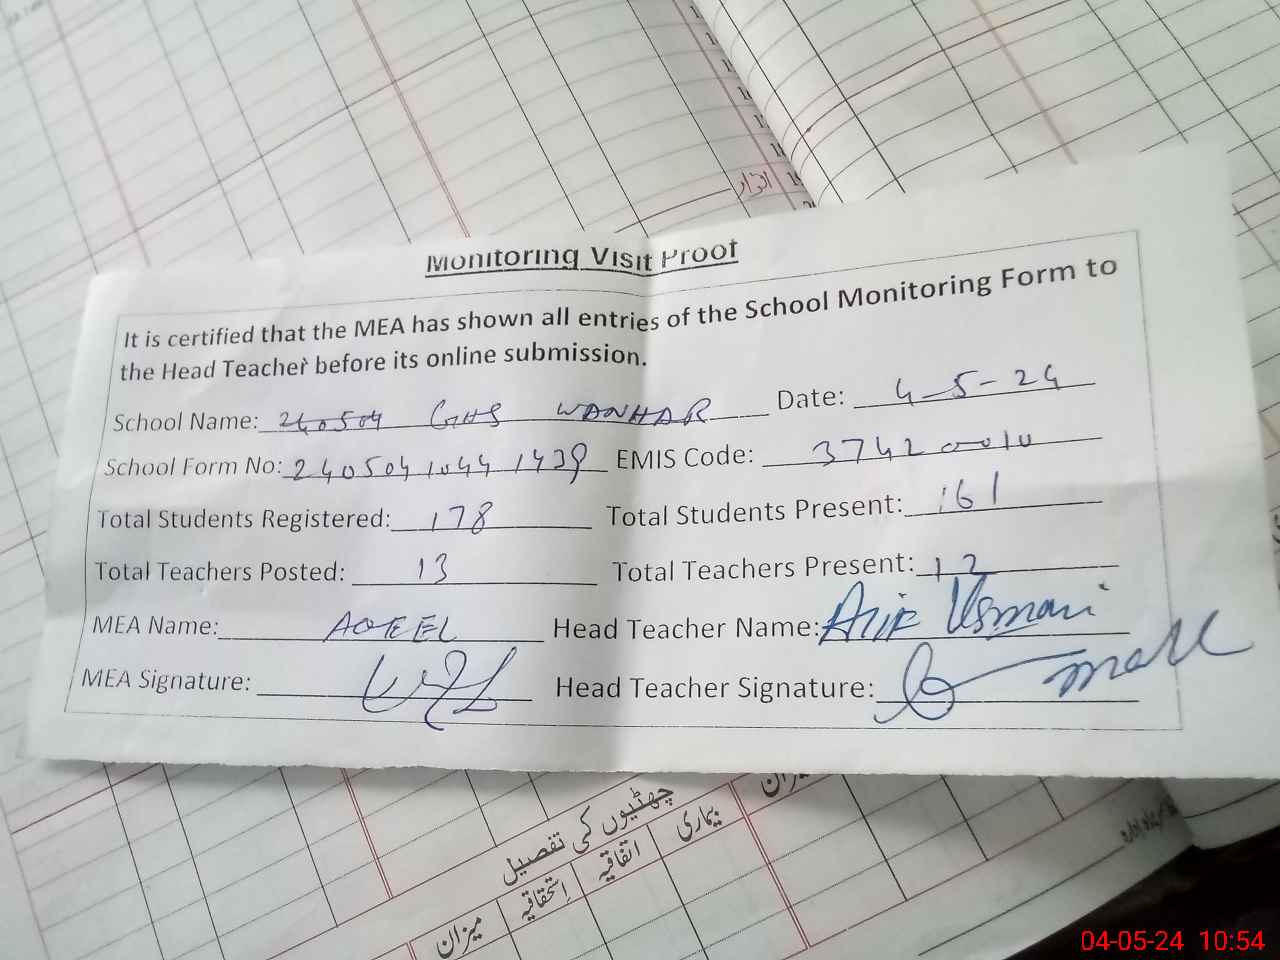 اتوار
Monitoring Visit Proof
It is certified that the MEA has shown all entries of the School Monitoring Form to
the Head Teacher before its online submission.
School Name: 240504 GHS WANHAR Date: 4-5-24
School Form No: 24050410441439 EMIS Code: 37420010
Total Students Registered: 178 Total Students Present: 161
Total Teachers Posted: 13 Total Teachers Present: 12
MEA Name: AQEEL Head Teacher Name: Arif Usmani
MEA Signature: Head Teacher Signature:
چھٹیوں کی تفصیل
میزان استحقاقیہ اتفاقیہ بیماری میزان
04-05-24 10:54